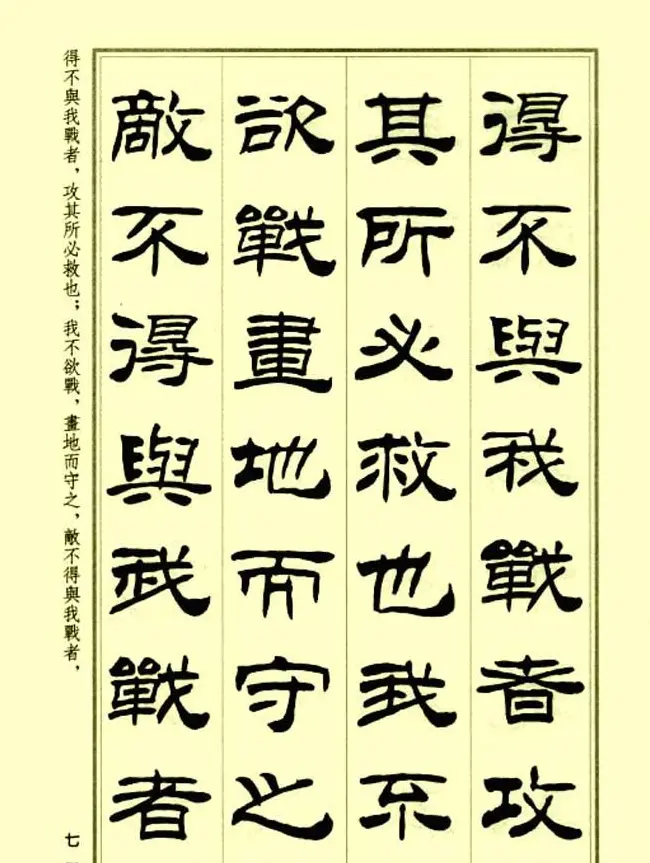 得不與我戰者攻
其所必救也我不
欲戰畫地而守之
敵不得與我戰者
得不與我戰者，攻其所必救也；我不欲戰，畫地而守之，敵不得與我戰者，
七